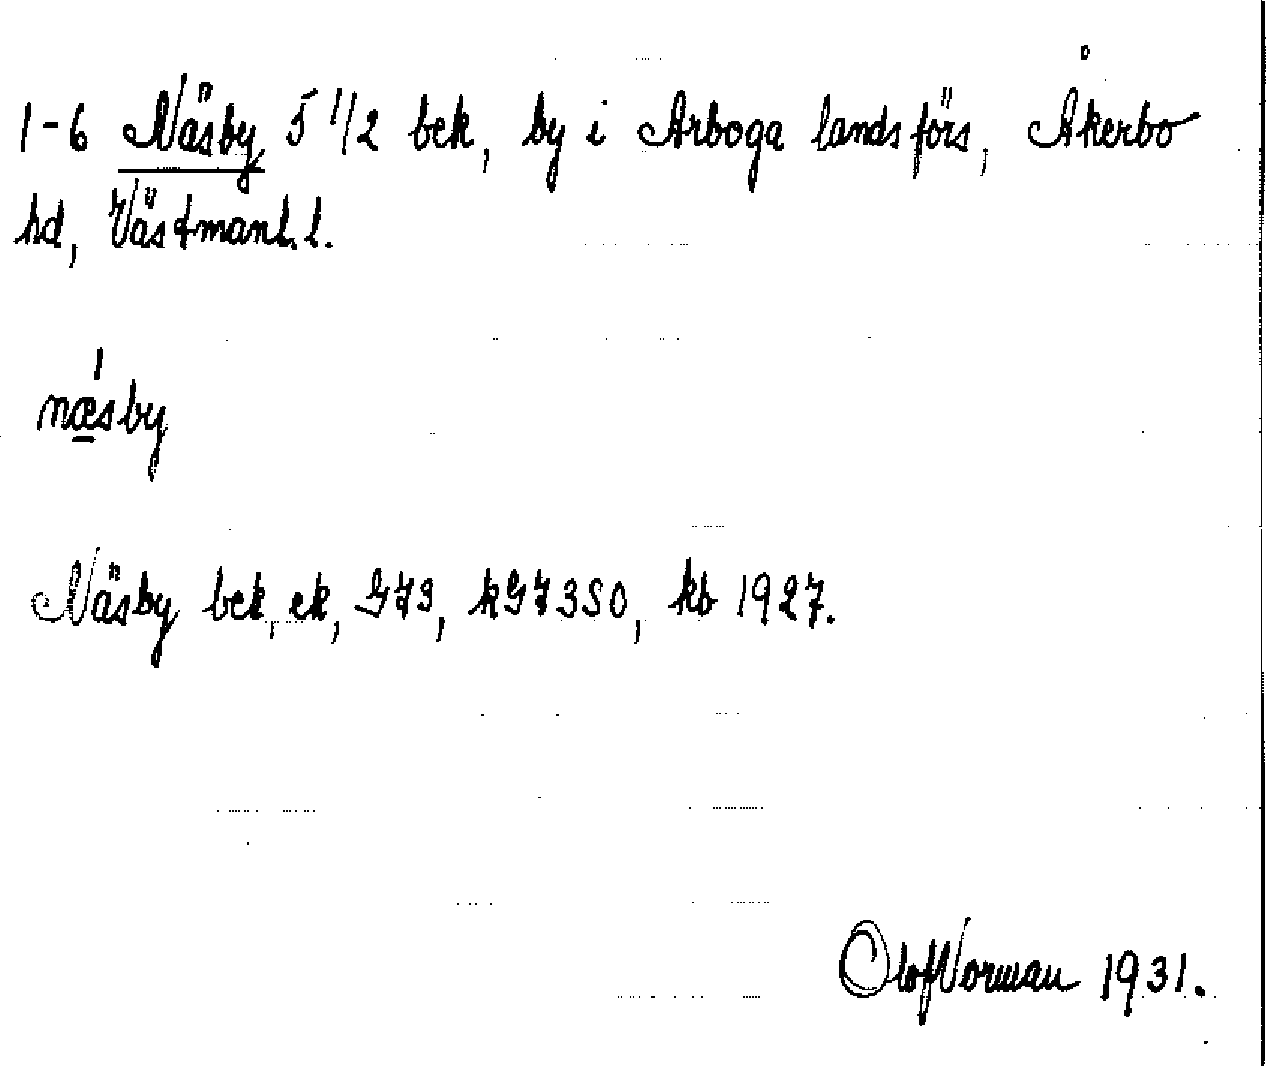 1-6 Näsby 5 1/2 bek, by i Arboga landsförs, Åkerbo
hd, Västmanl. l.
nǽ̱sby
Näsby bek, ek, GJ3, kGJ3S0, kb 1927.
Olof Norman 1931.